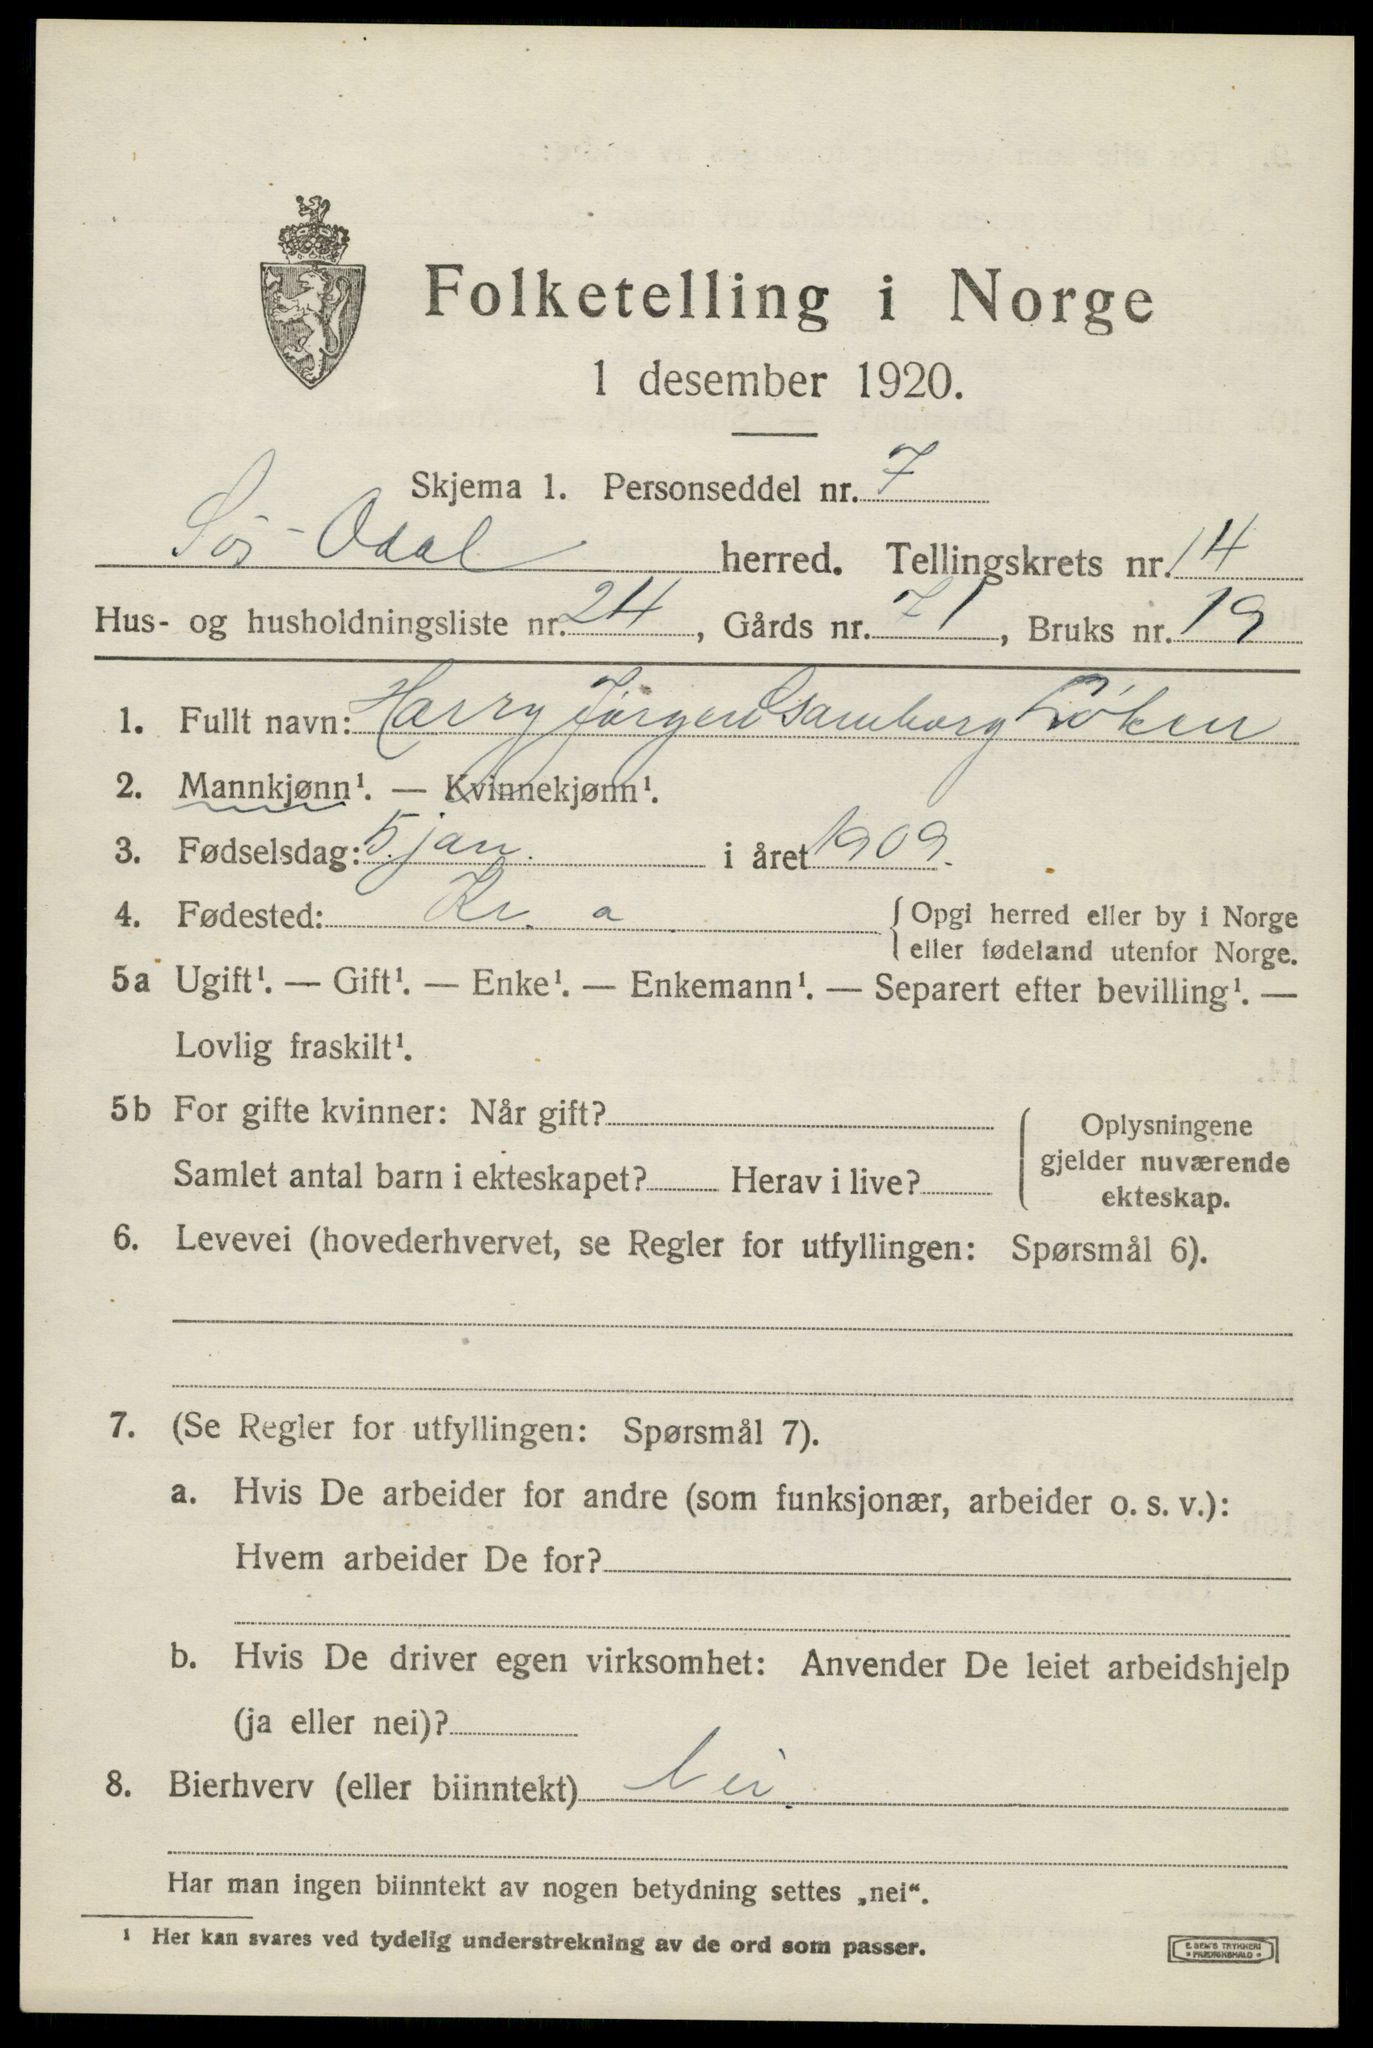 Folketelling i Norge
1 desember 1920.
Skjema 1. Personseddel nr. 7
Sør-Odal herred. Tellingskrets nr. 14
Hus- og husholdningsliste nr. 24, Gårds nr. 71, Bruks nr. 19
1. Fullt navn: Harry Jørgen Løken
2. Mannkjønn¹. — Kvinnekjønn¹.
3. Fødselsdag: 5. jan. i året 1909.
4. Fødested: Kr. a {Opgi herred eller by i Norge
eller fødeland utenfor Norge.
5a Ugift¹. — Gift¹. — Enke¹. — Enkemann¹. — Separert efter bevilling¹. —
Lovlig fraskilt¹.
5b For gifte kvinner: Når gift?
Samlet antal barn i ekteskapet? Herav i live?
{Oplysningene
gjelder nuværende
ekteskap.
6. Levevei (hovederhvervet, se Regler for utfyllingen: Spørsmål 6).
7. (Se Regler for utfyllingen: Spørsmål 7).
a. Hvis De arbeider for andre (som funksjonær, arbeider o. s. v.):
Hvem arbeider De for?
b. Hvis De driver egen virksomhet: Anvender De leiet arbeidshjelp
(ja eller nei)?
8. Bierhverv (eller biinntekt) Nei.
Har man ingen biinntekt av nogen betydning settes „nei“.
¹ Her kan svares ved tydelig understrekning av de ord som passer.
E. SEM'S TRYKKERI
FREDRIKSHALD